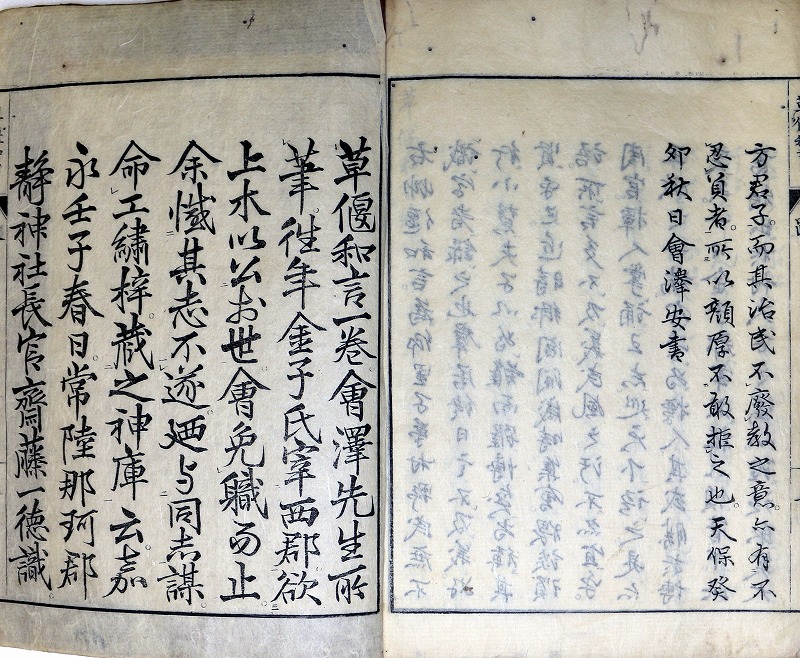 方君子而其治民不廢教之意亦有不
忍負者所以顔厚不敢拒之也天保癸
卯秋日會澤安書
草偃和言一卷會澤先生所
筆往年金子氏宰西郡欲
上木以公於世會免職而止
余慨其志不遂廼与同志謀
命工繡梓蔵之神庫云嘉
永壬子春日常陸那珂郡
静神社長官齋藤一徳識